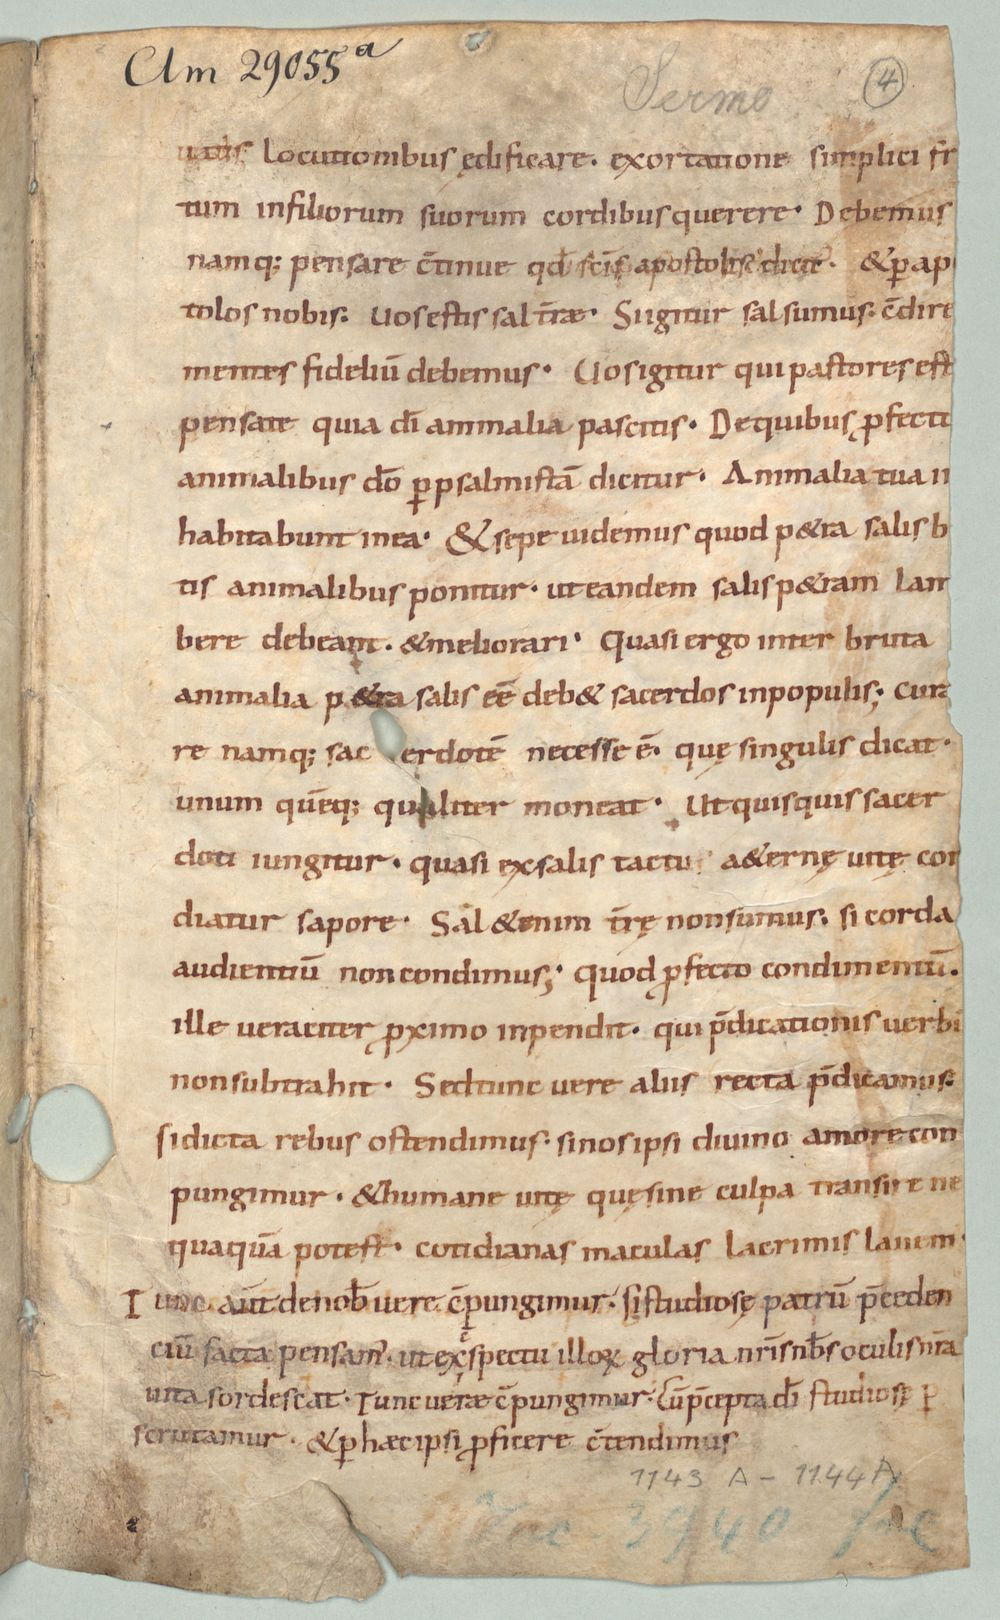 Clm 29055ᵃ
Sermo
4
locutionibus ędificare. exortatione simplici fr
tum infiliorum suorum cordibus querere. Debemus
namq; pensare c̄tinue qđ sc̄is apostolis dicit. &ꝑ ap
tolos nobis. Uos estis sal t̄ræ. Siigitur sal sumus. c̄dire
mentes fideliū debemus. Uos igitur qui pastores est
pensate quia dī animalia pascitis. De quibus ꝓfecti
animalibus dō ꝑ psalmistā dicitur. Animalia tua in
habitabunt inea. & sepe uidemus quod p&ra salis b
tis animalibus ponitur. ut eandem salis p&ram lam
bere debeant. & meliorari. Quasi ergo inter bruta
animalia p&ra salis eē deb& sacerdos inpopulis; cura
re namq; sacerdotē necesse ē. quę singulis dicat.
unum quēq; qualiter moneat. Ut quisquis sacer
doti iungitur. quasi ex salis tactu a&ernę uitę con
diatur sapore. Sal &enim t̄rę non sumus. si corda
audientiū non condimus; quod ꝓfecto condimentū.
ille ueraciter ꝓximo inpendit. qui p̄dicationis uerbi
non subtrahit. Sed tunc uere aliis recta p̄dicamus.
si dicta rebus ostendimus. sinos ipsi diuino amore con
pungimur. & humane uitę quę sine culpa transire ne
quaquā potest. cotidianas maculas lacrimis lauem.
Tunc aūt denob̄ uere c̄pungimur. si studiosę patrū p̄ceden
ciū facta pensam̄. ut ex c̄spectu illoꝝ gloria nr̄is nb̄s oculis nr̄a
uita sordescat. Tunc ueræ c̄pungimur. Cū p̄cepta dī studiosę ꝑ
scrutamur. & ꝑ hæc ipsi ꝓficere c̄tendimus
1143 A - 1144 A
3940